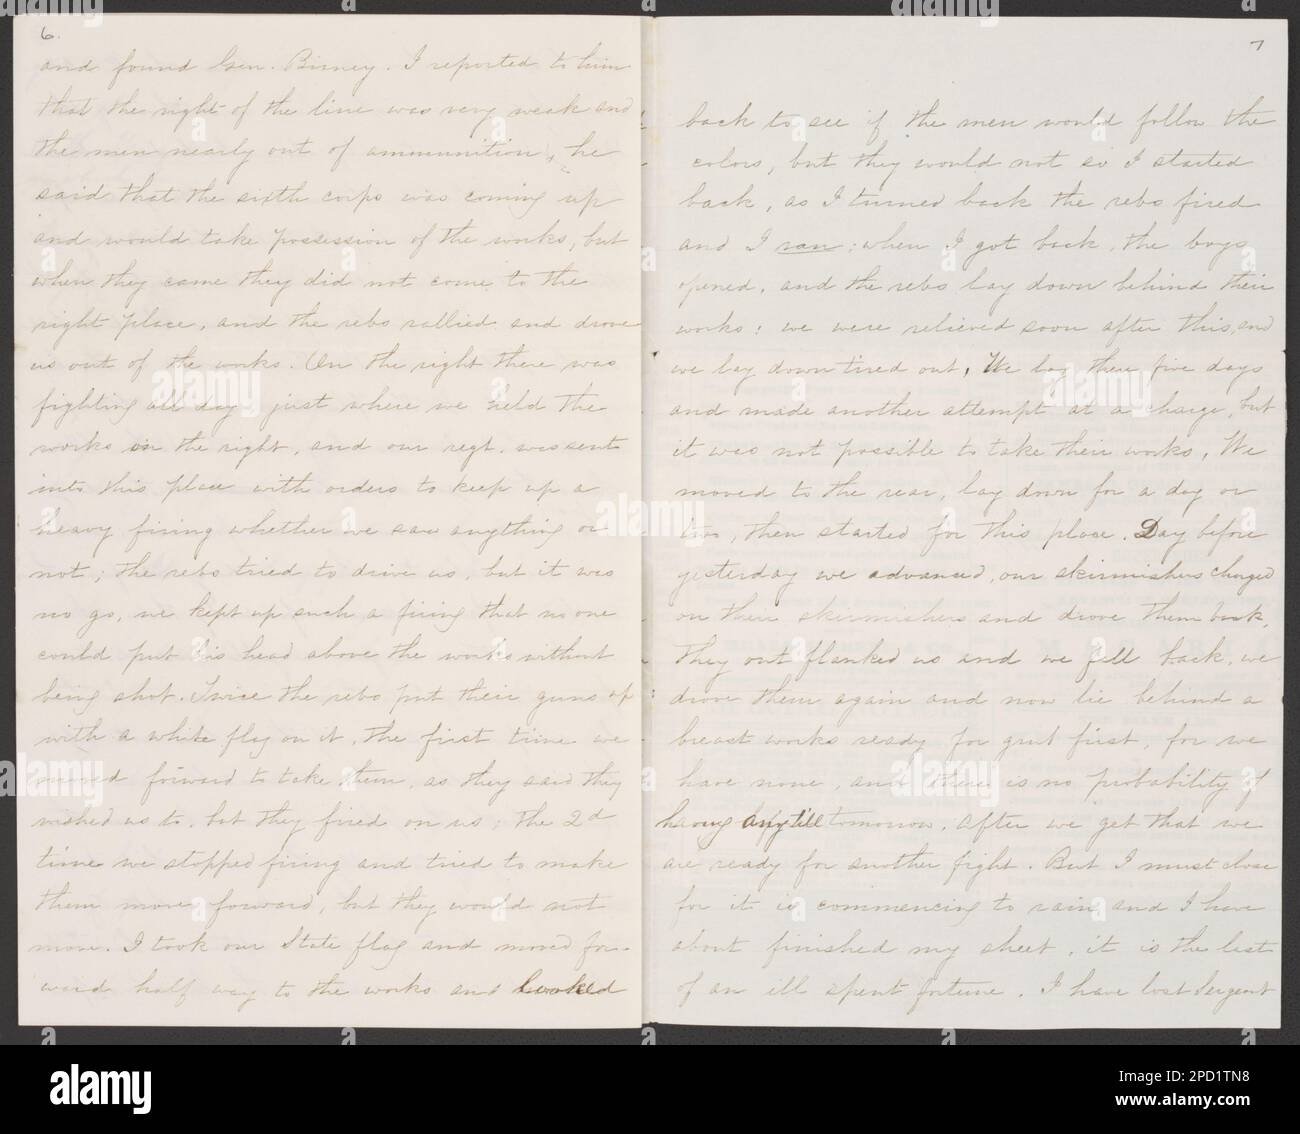 6.
and found Gen. Birney. I reported to him
that the right of the line was very weak and
the men nearly out of ammunition, he
said that the sixth corps was coming up
and would take possession of the works, but
when they came they did not come to the
right place, and the rebs rallied and drove
us out of the works. On the right there was
fighting all day just where we held the
works on the right, and our regt. was sent
into this place with orders to keep up a
heavy firing whether we saw anything or
not; the rebs tried to drive us, but it was
no go, we kept up such a firing that no one
could put his head above the works without
being shot. Twice the rebs put their guns up
with a white flag on it, the first time we
moved forward to take them, as they said they
wished us to, but they fired on us; the 2d
time we stopped firing and tried to make
them move forward, but they would not
move. I took our State flag and moved for-
ward half way to the works and looked
7
back to see if the men would follow the
colors, but they would not so I started
back, as I turned back the rebs fired
and I ran; when I got back, the boys
opened, and the rebs lay down behind their
works; we were relieved soon after this, and
we lay down tired out. We lay there five days
and made another attempt at a charge, but
it was not possible to take their works. We
moved to the rear, lay down for a day or
two, then started for this place. Day before
yesterday we advanced, our skirmishers charged
on their skirmishers and drove them back.
They out flanked us and we fell back, we
drove them again and now lie behind a
breast works ready for grub first, for we
have none, and there is no probability of
having any till tomorrow, after we get that we
are ready for another fight. But I must close
for it is commencing to rain and I have
about finished my sheet, it is the last
of an ill spent fortune. I have lost Sergent
alamy
Image ID: 2PD1TN8
www.alamy.com